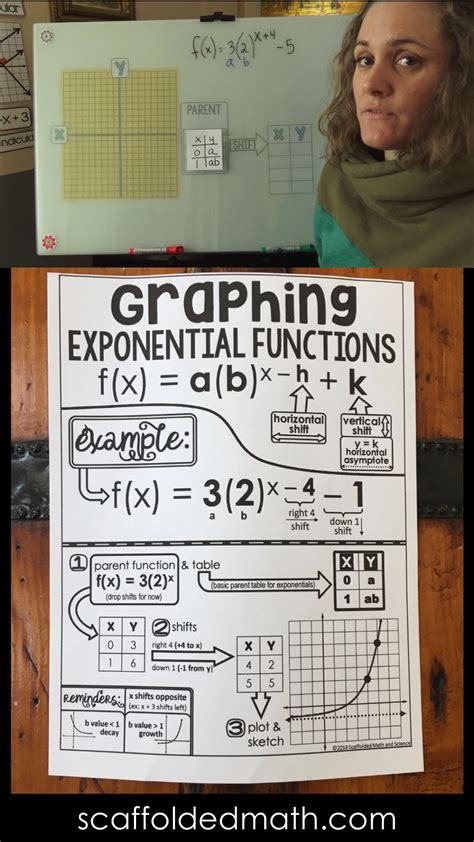 cular
-x + 3
andicular
f(x) = 3(2)^x+4 - 5
a b
Y
X
PARENT
x y
0 a
1 ab
SHIFT
X Y
Graphing
EXPONENTIAL FUNCTIONS
f(x) = a(b)^x-h + k
horizontal
shift
vertical
shift
y = k
horizontal
asymptote
example:
f(x) = 3(2)^x-4 - 1
a b
right 4
shift
down 1
shift
1 parent function & table
f(x) = 3(2)^x
(drop shifts for now)
(basic parent table for exponentials)
X Y
0 a
1 ab
X Y
0 3
1 6
2 shifts
right 4 (+4 to x)
down 1 (-1 from y)
X Y
4 2
5 5
3 plot &
sketch
reminders:
x shifts opposite
(ex: x + 3 shifts left)
b value < 1
decay
b value > 1
growth
©2018 Scaffolded Math and Science
scaffoldedmath.com